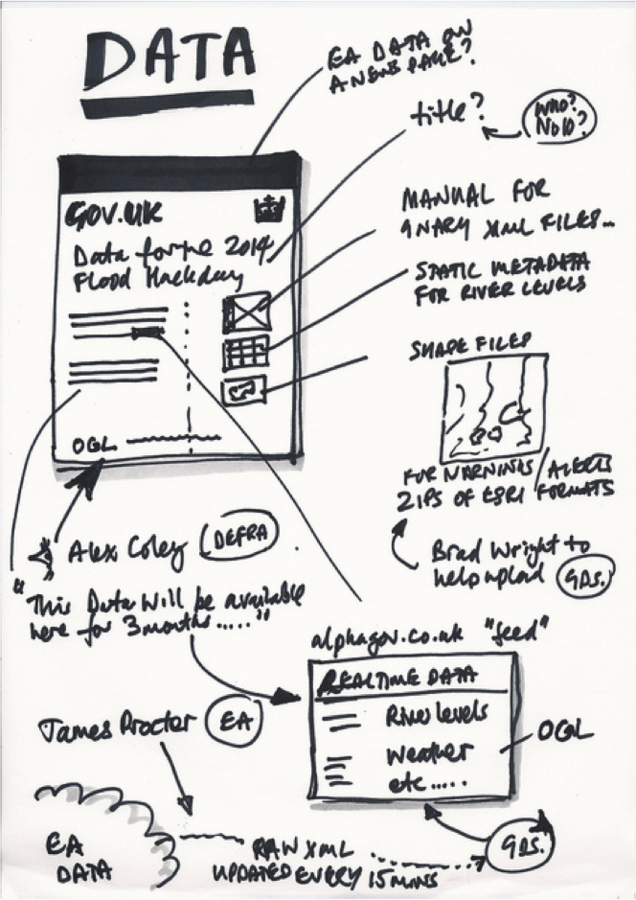 DATA
EA DATA ON
A NEW PAGE?
title?
WHO?
No10?
GOV.UK
Data for the 2014
Flood Hackday
MANUAL FOR
XML FILES...
STATIC METADATA
FOR RIVER LEVELS
SHAPE FILES
FOR WARNINGS / ALERTS
ZIPS OF ESRI FORMATS
OGL
Alex Coley DEFRA
Brad Wright to
help upload GDS.
"This Data will be available
here for 3 months....."
alphagov.co.uk "feed"
REALTIME DATA
River levels
Weather
etc.....
OGL
James Procter EA
EA
DATA
RAW XML
UPDATED EVERY 15 MINS
GDS.